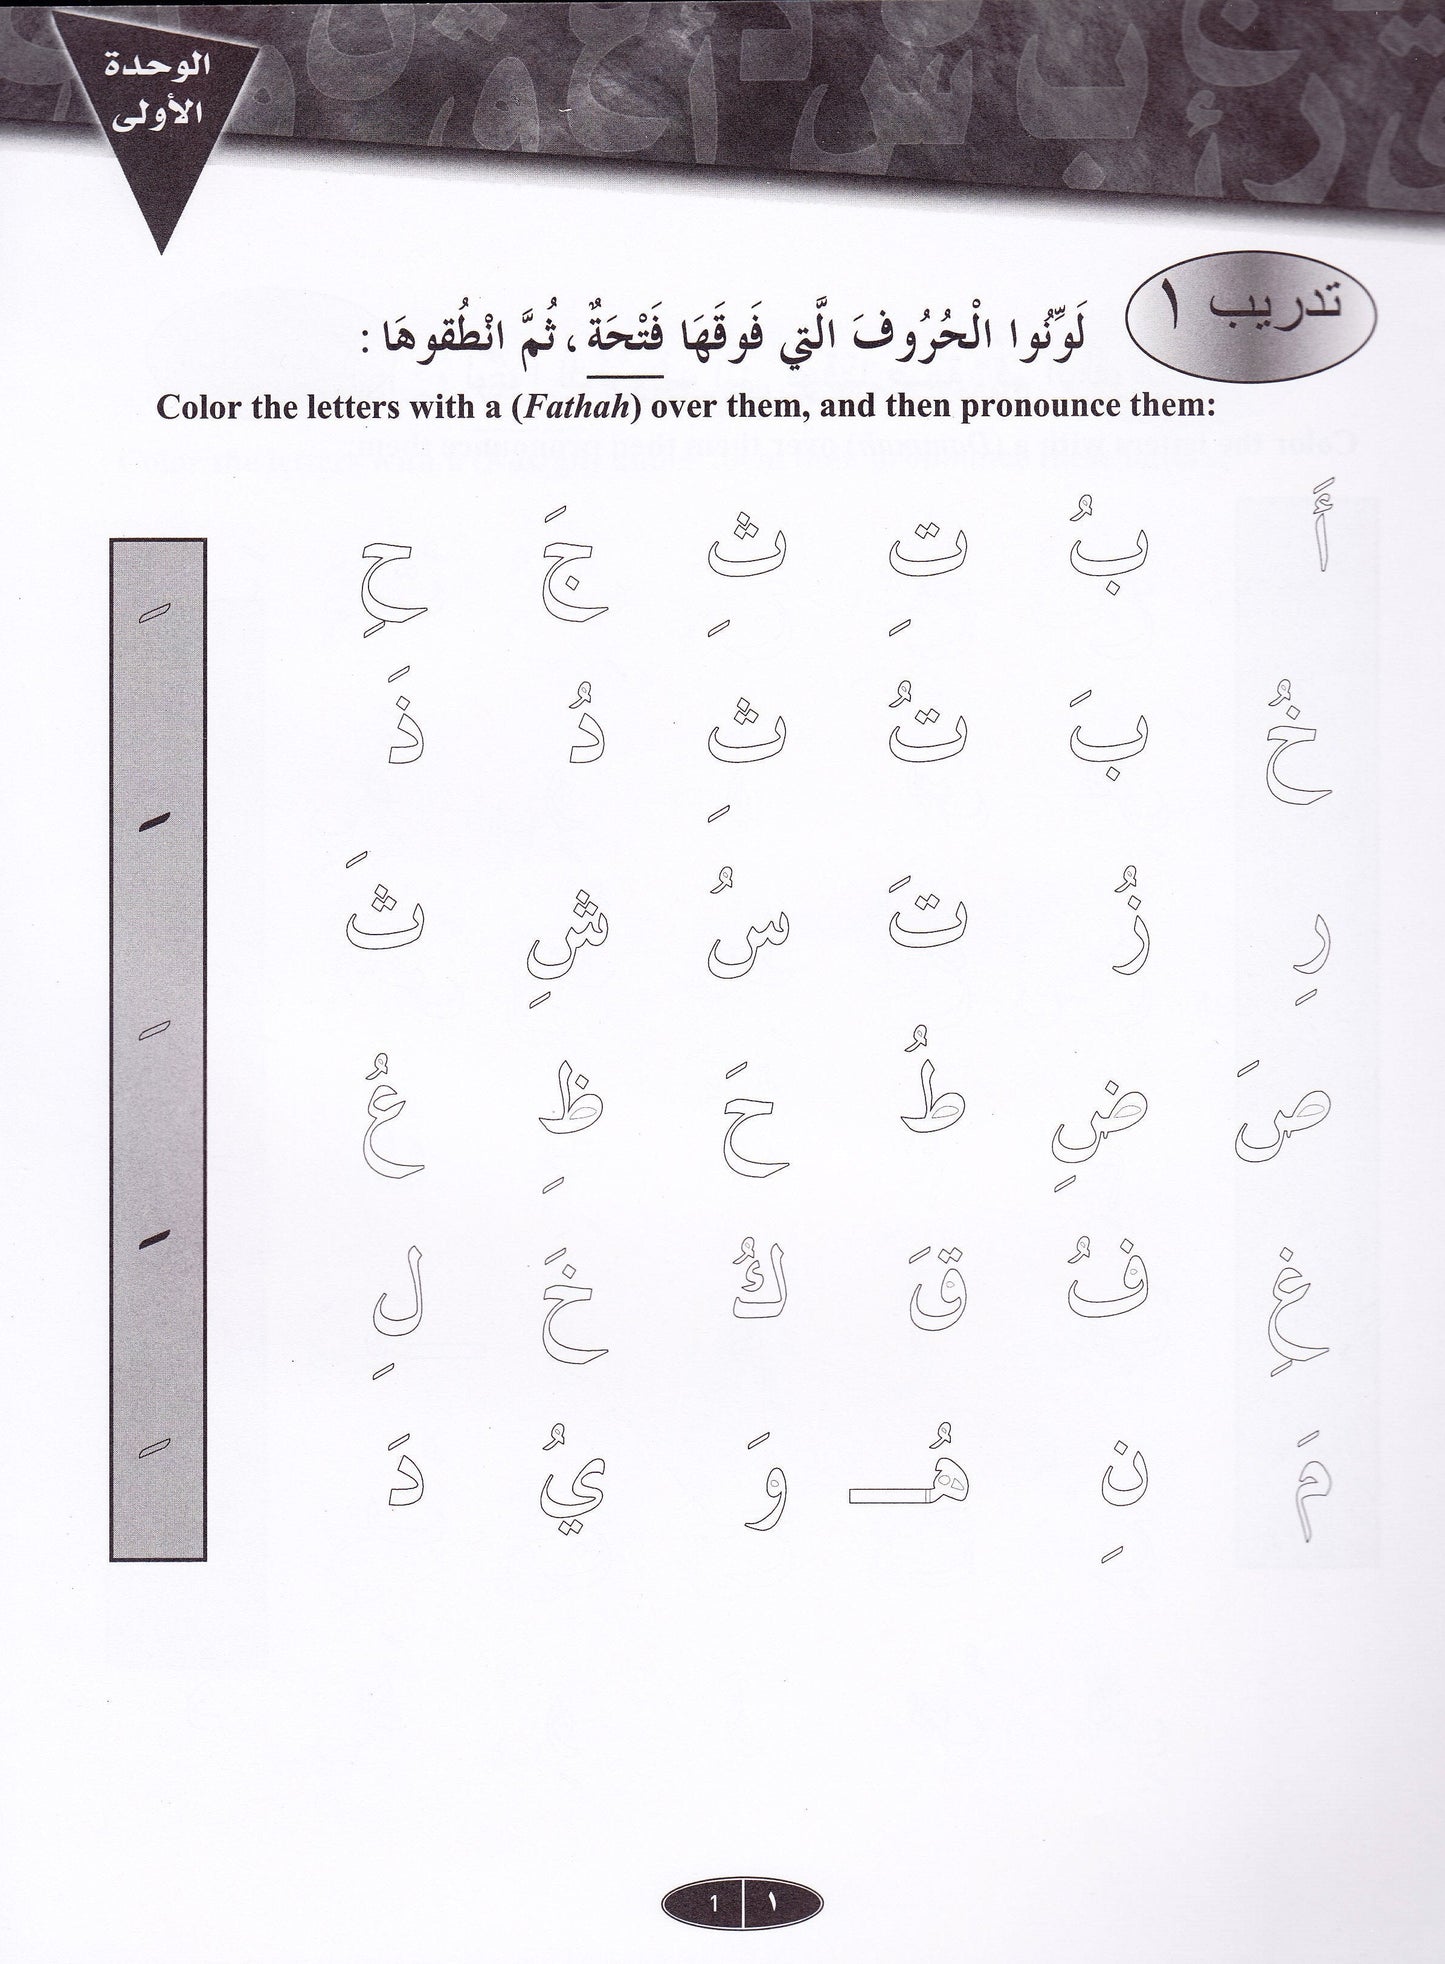 الوحدة
الأولى
تدريب ١
لَوِّنُوا الْحُرُوفَ الَّتي فَوقَهَا فَتْحَةٌ، ثُمَّ انْطُقوهَا :
Color the letters with a (Fathah) over them, and then pronounce them:
أَ بُ تِ ثِ جَ حِ
خُ بَ تُ ثِ دُ ذَ
رِ زُ تَ سُ شِ ثَ
صَ ضِ طُ حَ ظِ عُ
غِ فُ قَ كُ خَ لِ
مَ نِ هُـ وَ يُ دَ
1 ١